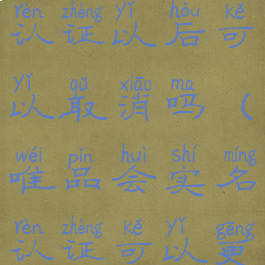 rèn zhèng yǐ hòu kě
认证以后可
yǐ qǔ xiāo ma
以取消吗（
wéi pǐn huì shí míng
唯品会实名
rèn zhèng kě yǐ gēng
认证可以更